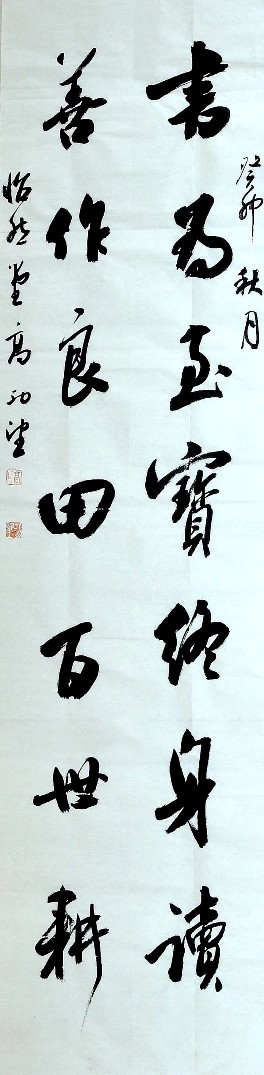 癸卯秋月
書為至寶終身讀
善作良田百世耕
怡然堂高功望